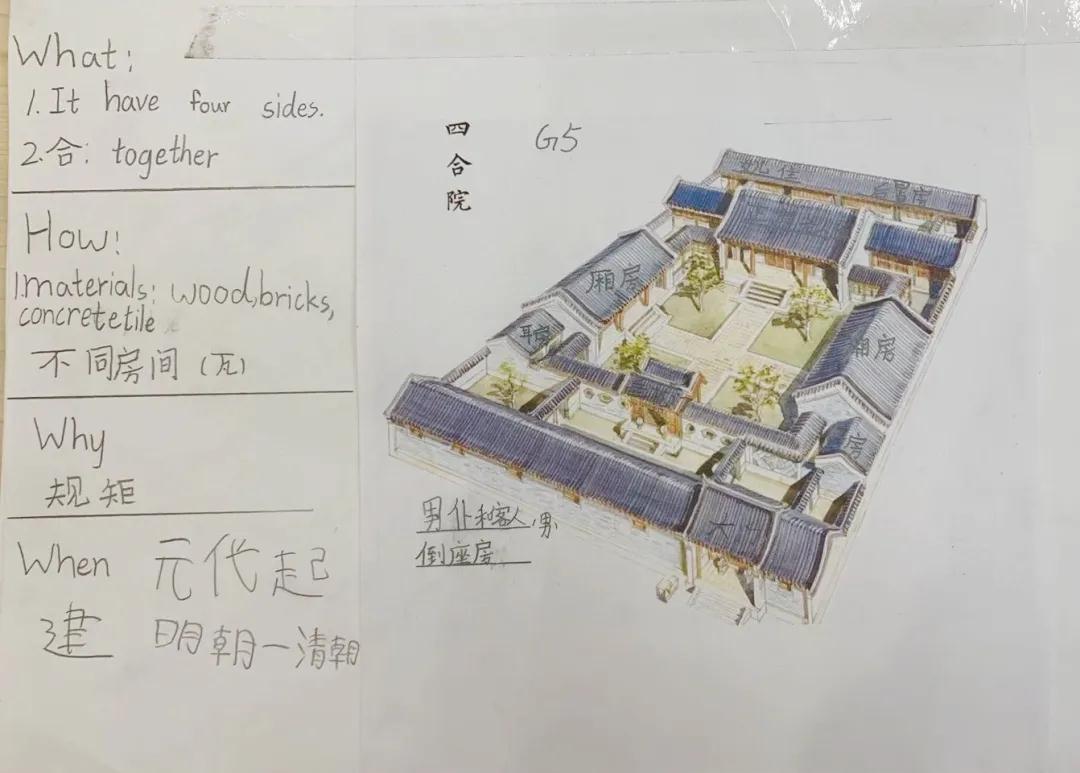 What:
1. It have four sides.
2. 合: together
How:
1. materials: wood, bricks,
concrete tile
不同房间 (瓦)
Why
规矩
When 元代起
建 明朝一清朝
四合院
G5
女儿住
后罩房
厢房
耳房
厢房
房
大门
男仆和客人,男
倒座房